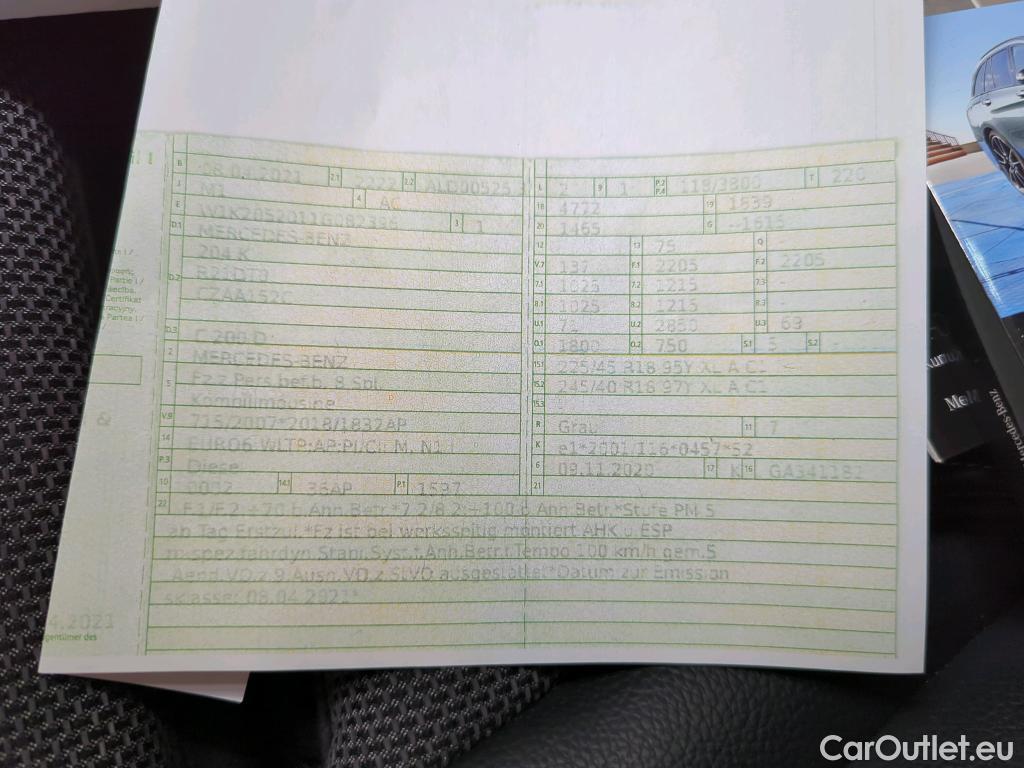 B 08.04.2021 2.1 2222 2.2 ALD00525 3
J M1 4 AC
E W1K2052011G082386 3 1
D.1 MERCEDES-BENZ
204 K
D.2 R21DT0
CZAA152
D.3 C 200 D
2 MERCEDES-BENZ
5 Fz.z.Pers.bef.b. 8 Spl.
Kombilimousine
V.9 715/2007*2018/1832AP
14 EURO6 WLTP;AP;PI/CI; M, N1
P.3 Diesel
10 0002 14.1 36AP P.1 1597
L 2 9 1 P.2 P.4 118/3800 T 220
18 4772 19 1839
20 1465 G --1615
12 - 13 75 Q -
V.7 137 F.1 2205 F.2 2205
7.1 1025 7.2 1215 7.3 -
8.1 1025 8.2 1215 8.3 -
U.1 71 U.2 2850 U.3 69
O.1 1800 O.2 750 S.1 5 S.2 -
15.1 225/45 R18 95Y XL A C1 --
15.2 245/40 R18 97Y XL A C1
15.3 -
R Grau 11 7
K e1*2001/116*0457*52
6 09.11.2020 17 K 16 GA341182
21
22 F.1/F.2:+70 b.Anh.Betr.*7.2/8.2:+100 b.Anh.Betr.*Stufe PM 5
ab Tag Erstzul.*Fz ist bei werksseitig montiert AHK u.ESP
m.spez.fahrdyn.Stabi.Syst.f.Anh.Betr.f.Tempo 100 km/h gem.5
Aend.VO.z.9.Ausn.VO.z.StVO ausgestattet*Datum zur Emission
sklasse: 08.04.2021*
4.2021
&
Mercedes-Benz
CarOutlet.eu